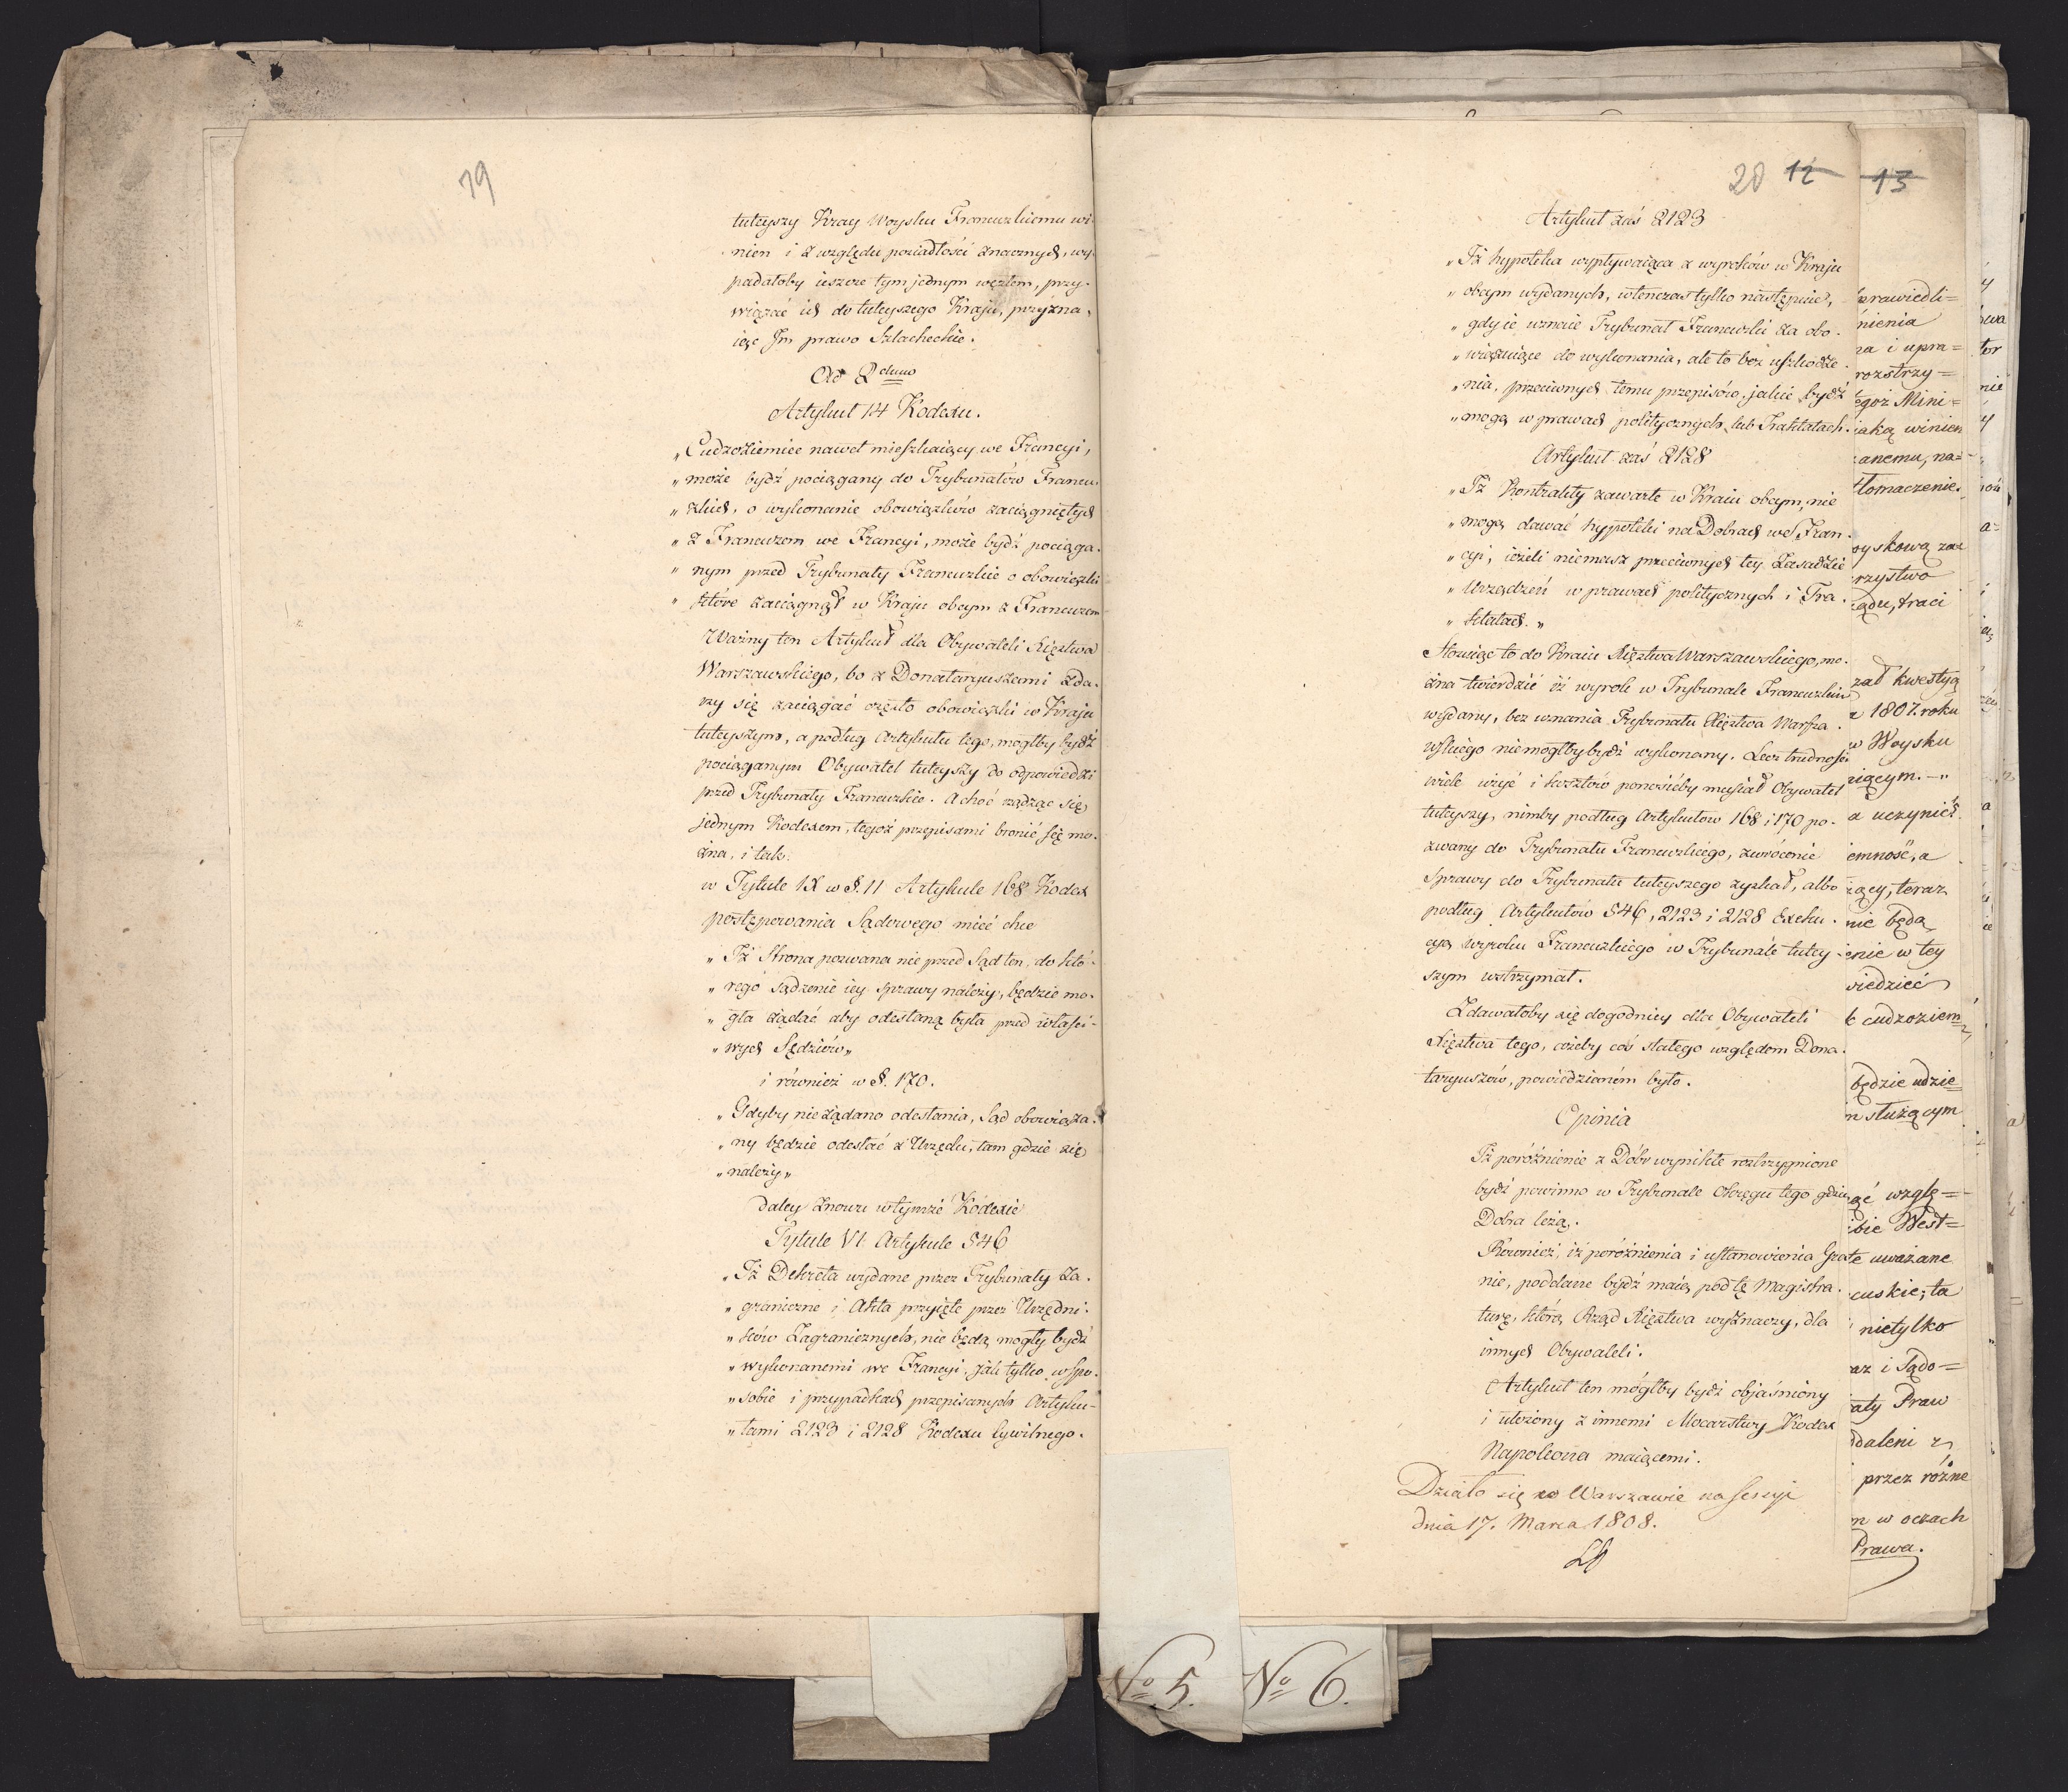 19
tuteyszy Kray Woysku Francuzkiemu wi-
nien i z względu posiadłości znacznych, wy-
padałoby ieszcze tym jednym węzłem, przy-
wiązać ich do tuteyszego Kraju, przyzna-
iąc Im prawo Szlacheckie.
Ad 2dum
Artykuł 14 Kodexu.
„Cudzoziemiec nawet mieszkaiący we Francyi,
„może bydź pociągany do Trybunałów Francu-
„zkich, o wykonanie obowiązków zaciągniętych
„z Francuzem we Francyi, może bydź pociąga-
„nym przed Trybunały Francuzkie o obowiązki
„które zaciągnął w Kraju obcym z Francuzem
Ważny ten Artykuł dla Obywateli Xięztwa
Warszawskiego, bo z Donataryuszami zda-
rzy się zaciągać często obowiązki w Kraju
tuteyszym, a podług Artykułu tego, mogłby bydź
pociąganym Obywatel tuteyszy do odpowiedzi
przed Trybunały Francuzkie. A choć rządząc się
jednym Kodexem, tegoż przepisami bronić się mo-
żna, i tak:
w Tytule IX w §. 11 Artykule 168 Kodex
postępowania Sądowego mieć chce
„Iż Strona pozwana nie przed Sąd ten, do któ-
„rego sądzenie iey sprawy należy, będzie mo-
„gła żądać aby odesłaną była przed właści-
„wych Sędziów„
i również w §. 170.
„Gdyby nie żądano odesłania, Sąd obowiąza-
„ny będzie odesłać z Urzędu, tam gdzie się
„należy„
daley znowu w tymże Kodexie
Tytule VI. Artykule 546
„Iż Dekreta wydane przez Trybunały Za-
„graniczne i Akta przyięte przez Urzędni-
„ków Zagranicznych, nie będą mogły bydź
„wykonanemi we Francyi, jak tylko w spo-
„sobie i przypadkach przepisanych Artyku-
„łami 2123 i 2128 Kodexu Cywilnego.
20 12
Artykuł zaś 2123
„Iż hypoteka wypływaiąca z wyroków w Kraju
„obcym wydanych, wtenczas tylko następuie,
„gdy ie uznaie Trybunał Francuzki za obo-
„wiązuiące do wykonania, ale to bez uszkodze-
„nia, przeciwnych temu przepisów, jakie bydź
„mogą w prawach politycznych lub Traktatach.
Artykuł zaś 2128
„Iż Kontrakty zawarte w Kraiu obcym, nie
„mogą dawać hypoteki na Dobrach we Fran-
„cyi, ieżeli niemasz przeciwnych tey Zasadzie
„Urządzeń w prawach politycznych i Tra-
„ktatach.„
Stosuiąc to do Kraiu Xięztwa Warszawskiego, mo-
żna twierdzić iż wyrok w Trybunale Francuzkim
wydany, bez uznania Trybunału Xięztwa Warsza-
wskiego niemogłby bydź wykonany. Lecz trudności
wiele użyć i kosztów ponosićby musiał Obywatel
tuteyszy, nimby podług Artykułów 168 i 170 po-
zwany do Trybunału Francuzkiego, zwrócenie
Sprawy do Trybunału tuteyszego zyskał, albo
podług Artykułów 546, 2123 i 2128 Exeku-
cyą wyroku Francuzkiego w Trybunale tutey-
szym wstrzymał.
Zdawałoby się dogodniey dla Obywateli
Xięztwa tego, ażeby coś stałego względem Dona-
taryuszów, powiedzianém było.
Opinia
Iż poróżnienie z Dóbr wynikłe rozstrzygnione
bydź powinno w Trybunale Okręgu tego gdzie
Dobra leżą.
Również, iż poróżnienia i ustanowienia Gra
nie, poddane bydź maią pod tę Magistra-
turę, którą Rząd Xięztwa wyznaczy, dla
innych Obywateli.
Artykuł ten mógłby bydź objaśniony
i ułożony z innemi Mocarstwy Kodex
Napoleona maiącemi.
Działo się w Warszawie na sessyi
dnia 17. Marca 1808.
13
prawiedli=
nienia
na i upra=
rozstrzy=
egoż Mini=
iaką winien
anemu, na=
tłomaczenie.
oyskową za
rzystwo
ządu, traci
zał kwestyą
a 1807. roku
w Woysku
iącym. -„
a uczynić
iemność, a
żący, teraz
nie będą
enie w tey
wiedzieć
k cudzoziem=
będzie udzie=
m służącym
względ=
bie West=
te uważane
cuskie, ta
nietylko
az i Sądo=
ały Praw
ddaleni z
przez różne
m w oczach
Prawa.
No 5.
No 6.